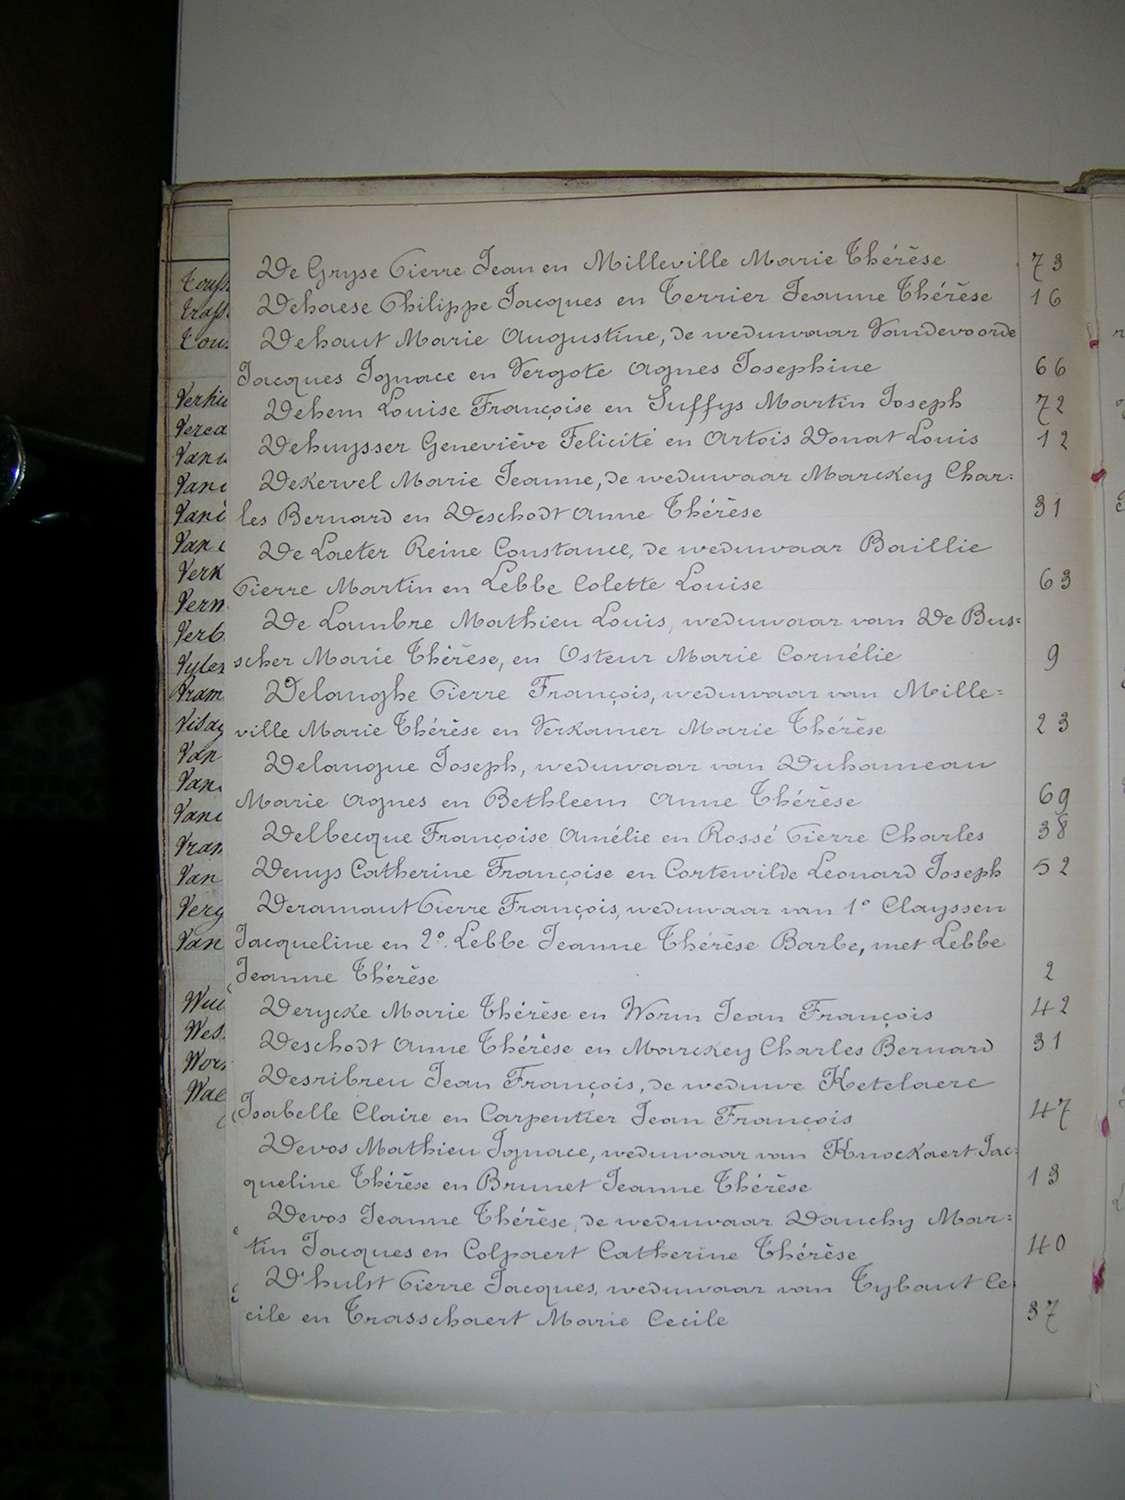 De Gryse Pierre Jean en Milleville Marie Thérèse 73
Dehaese Philippe Jacques en Terrier Jeanne Thérèse 16
Dehaut Marie Augustine, de weduwaar Vandevoorde
Jacques Ignace en Vergote Agnes Josephine 66
Dehem Louise Françoise en Suffys Martin Joseph 72
Dehuysser Geneviève Felicité en Artois Donat Louis 12
Dekervel Marie Jeanne, de weduwaar Marckey Char=
les Bernard en Deschodt Anne Thérèse 31
De Laeter Reine Constance, de weduwaar Baillie
Pierre Martin en Lebbe Colette Louise 63
De Lambre Mathieu Louis, weduwaar van De Bus=
scher Marie Thérèse, en Osteur Marie Cornélie 9
Delanghe Pierre François, weduwaar van Mille=
ville Marie Thérèse en Verkamer Marie Thérèse 23
Delangue Joseph, weduwaar van Duhameau
Marie Agnes en Bethleem Anne Thérèse 69
Delbecque Françoise Amélie en Rossé Pierre Charles 38
Denys Catherine Françoise en Cortewilde Leonard Joseph 52
Deramaut Pierre François, weduwaar van 1° Clayssen
Jacqueline en 2° Lebbe Jeanne Thérèse Barbe, met Lebbe
Jeanne Thérèse 2
Derycke Marie Thérèse en Worm Jean François 42
Deschodt Anne Thérèse en Marckey Charles Bernard 31
Desribreu Jean François, de weduwe Ketelaere
Isabelle Claire en Carpentier Jean François 47
Devos Mathieu Ignace, weduwaar van Knockaert Jac=
queline Thérèse en Brunet Jeanne Thérèse 13
Devos Jeanne Thérèse, de weduwaar Dauchy Mar=
tin Jacques en Colpaert Catherine Thérèse 40
D'hulst Pierre Jacques, weduwaar van Tybaut Ce
cile en Trasschaert Marie Cecile 37